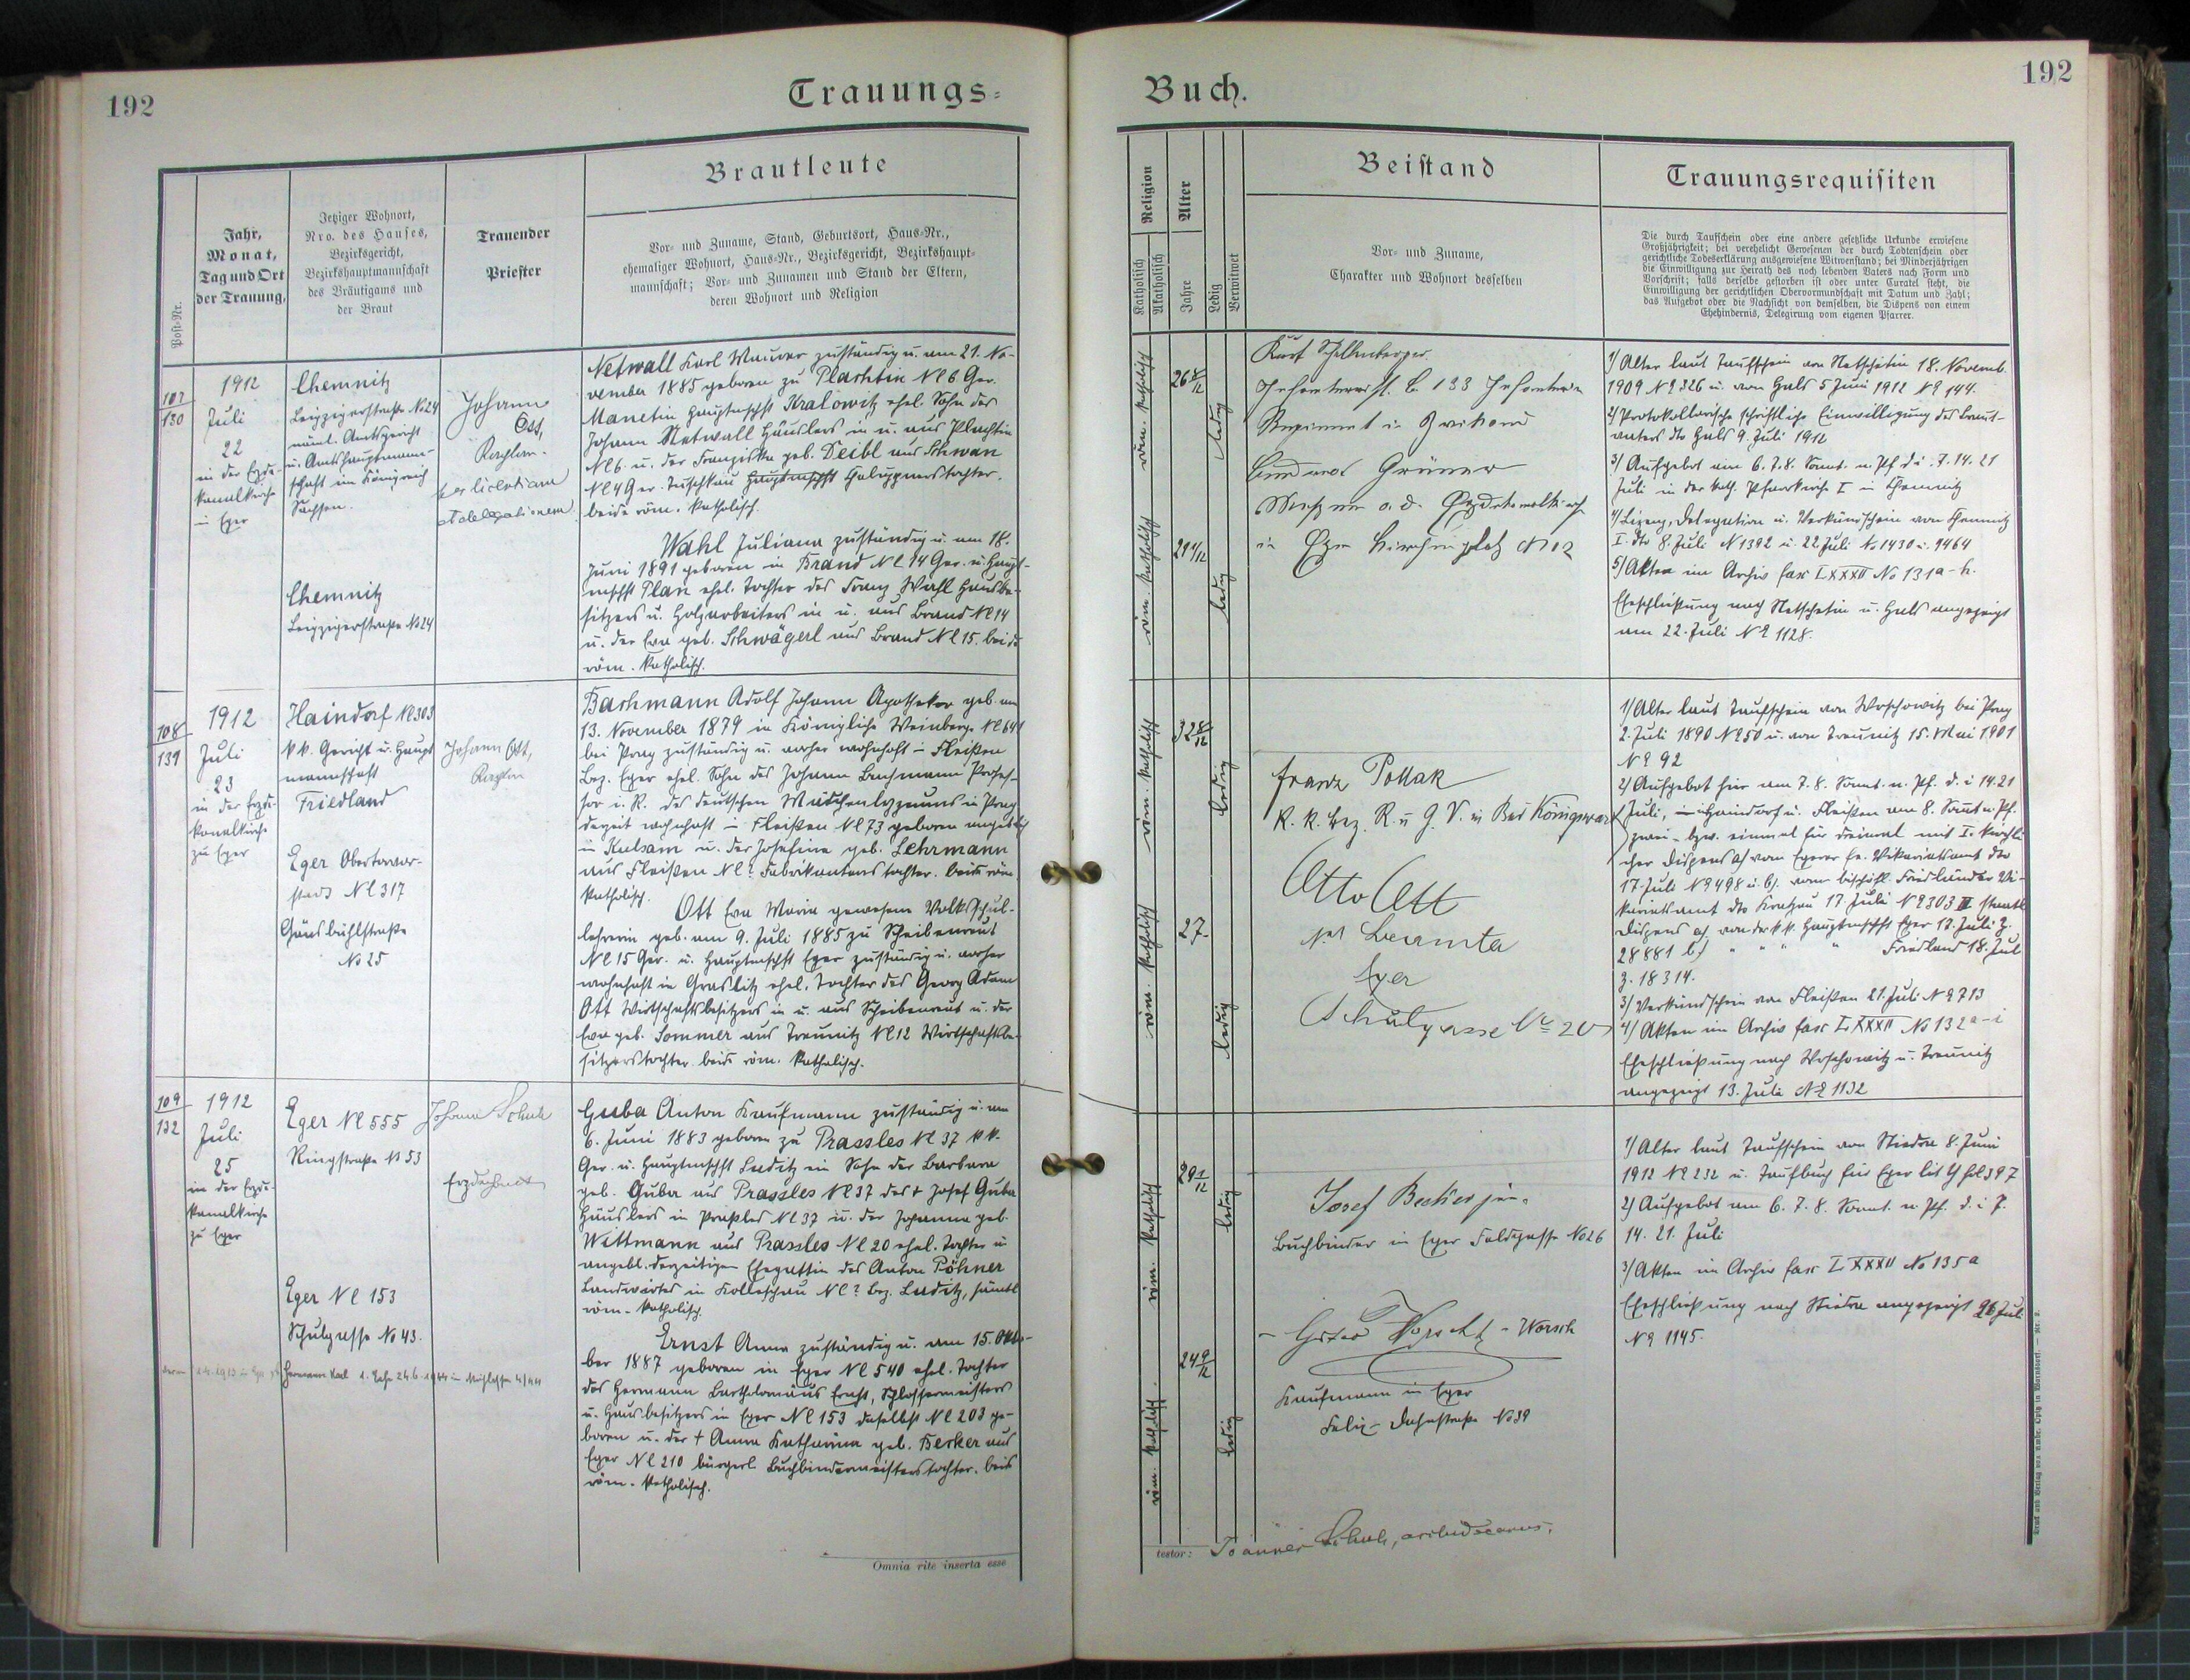 192
Trauungs-
Buch.
192
Post-Nr.
Jahr,
Monat,
Tag und Ort
der Trauung,
Jetziger Wohnort,
Nro. des Hauses,
Bezirksgericht,
Bezirkshauptmannschaft
des Bräutigams und
der Braut
Trauender
Priester
Brautleute
Vor- und Zuname, Stand, Geburtsort, Haus-Nr.,
ehemaliger Wohnort, Haus-Nr., Bezirksgericht, Bezirkshaupt-
mannschaft; Vor- und Zunamen und Stand der Eltern,
deren Wohnort und Religion
Religion
Katholisch
Akatholisch
Alter
Jahre
Ledig
Verwitwet
Beistand
Vor- und Zuname,
Charakter und Wohnort desselben
Trauungsrequisiten
Die durch Taufschein oder eine andere gesetzliche Urkunde erwiesene
Großjährigkeit; bei verehelicht Gewesenen der durch Todtenschein oder
gerichtliche Todeserklärung ausgewiesene Witwenstand; bei Minderjährigen
die Einwilligung zur Heirath des noch lebenden Vaters nach Form und
Vorschrift; falls derselbe gestorben ist oder unter Curatel steht, die
Einwilligung der gerichtlichen Obervormundschaft mit Datum und Zahl;
das Aufgebot oder die Nachsicht von demselben, die Dispens von einem
Ehehindernis, Delegirung vom eigenen Pfarrer.
107
130
1912
Juli
22
in der Erzde-
kanalkirche
in Eger
Chemnitz
Leipzigerstraße No 24
Amtsgericht
u. Amtshauptmann-
schaft im Königreich
Sachsen.
Chemnitz
Leipzigerstraße No 24
Johann
Ott,
Kaplan.
per licentiam
et delegationem
Netwall Karl Maurer zuständig u. am 21. No-
vember 1885 geboren zu Plachtin No 6 Ger.
Manetin Hauptmschft Kralowitz ehel. Sohn des
Johann Netwall Häuslers in u. aus Plachtin
No 6. u. der Franziska geb. Deibl aus Schwan
No 4 Ger. Tuschkau Hauptmschft
beide röm. katholisch.
Wahl Juliana zuständig u. am 18.
Juni 1891 geboren in Brand No 14 Ger. u. Haupt-
mschft Plan ehel. Tochter des Franz Wahl Hausbe-
sitzers u. Holzarbeiters in u. aus Brand No 14
u. der Eva geb. Schwägerl aus Brand No 15. beide
röm. katholisch.
röm. katholisch
26 8/12
ledig
röm. katholisch
21 1/12
ledig
Kurt
133 Infanterie
Regiment in Zwickau
Grüner
Messner a. d. Erzdekanalkirche
in Eger Kirchenplatz No 2
1/ Alter laut Taufschein von Netschetin 18. Novemb.
1909 No 226 u. von Hals 5 Juni 1912 No 144.
2/ Protokollarische schriftliche Einwilligung des Braut-
vaters dto Hals 9. Juli 1912
3/ Aufgebot am 6. 7. 8. Sonnt. n. Pf. d. i. 7. 14. 21
Juli in der kath. Pfarrkirche I in Chemnitz
4/ Lizenz, Delegation u. Verkündschein von Chemnitz
I. dto 8. Juli No 1392 u. 22. Juli No 1430 u. 1464
5/ Akten im Archiv fasc LXXXII No 131 a-h.
Eheschließung nach Netschetin u. Hals angezeigt
am 22. Juli No 1128.
108
131
1912
Juli
23
in der Erzde-
kanalkirche
zu Eger
Haindorf No 303
k k. Gericht u. Haupt
mannschaft
Friedland
Eger Obertorvor-
stadt No 317
Gänsbühlstraße
No 25
Johann Ott,
Kaplan
Bachmann Adolf Johann Apotheker geb. am
13. November 1879 in Königliche Weinberge No 641
bei Prag zuständig u. vorher wohnhaft in Fleißen
Bez. Eger ehel. Sohn des Johann Bachmann Profes-
sor i. R. des deutschen Mädchenlyzeums in Prag
derzeit wohnhaft in Fleißen No 73 geboren angeblich
in Kulsam u. der Josefine geb. Lehrmann
aus Fleißen No ? Fabrikantenstochter. beide röm.
katholisch.
Ott Eva Maria gewesene Volksschul-
lehrerin geb. am 9. Juli 1885 zu Scheibenreut
No 15 Ger. u. Hauptmschft Eger zuständig u. vorher
wohnhaft in Graslitz ehel. Tochter des Georg Adam
Ott Wirtschaftsbesitzers in u. aus Scheibenreut u. der
Eva geb. Sommer aus Treunitz No 12 Wirtschaftsbe-
sitzerstochter beide röm. katholisch.
röm. katholisch
32 8/12
ledig
röm. katholisch
27
ledig
Franz Pollak
K. K. Bez. R. u G. V. in Bad Königswart
Otto Ott
Beamter
Eger
Schulgasse No 20
1/ Alter laut Taufschein von Wrschowitz bei Prag
2. Juli 1890 No 250 u. von Treunitz 15. Mai 1901
No 92
2/ Aufgebot hier am 7. 8. Sonnt. n. Pf. d. i 14. 21
Juli, in Haindorf u. Fleißen am 8. Sonnt n. Pf.
zwei- bzw. einmal für dreimal mit I. kirchli
cher Dispens a/ vom Egerer Vikariatsamt dto
17. Juli No 498 u. b/ vom bischöfl. Friedländer Vi-
kariatsamt dto Kratzau 17. Juli No 303 II staatl
Dispens a/ von der k k. Hauptmschft Eger 17. Juli Z.
28881 b/ " " " Friedland 18. Jul
Z. 18314.
3/ Verkündschein von Fleißen 21. Juli No 713
4/ Akten im Archiv fasc LXXXII No 132 a-i
Eheschließung nach Wrschowitz u. Treunitz
angezeigt 13. Juli No 1132
109
132
1912
Juli
25
in der Erzde-
kanalkirche
zu Eger
Eger No 555
Ringstraße No 53
Eger No 153
Schulgasse No 43.
Johann Schuh
Erzdechant
Guba Anton Kaufmann zuständig u. am
6. Juni 1883 geboren zu Prassles No 37 k k.
Ger. u. Hauptmschft Luditz ein Sohn der Barbara
geb. Guba aus Prassles No 37 des † Josef Guba
Häuslers in Praßles No 37 u. der Johanna geb.
Wittmann aus Prassles No 20 ehel. Tochter u
angebl. derzeitigen Ehegattin des Anton Pöhner
Landwirtes in Kolleschau No ? Bez. Luditz, sämtl
röm. katholisch.
Ernst Anna zuständig u. am 15. Okto-
ber 1887 geboren in Eger No 540 ehel. Tochter
des Hermann Bartholomäus Ernst, Schlossermeisters
u. Hausbesitzers in Eger No 153 daselbst No 203 ge-
boren u. der † Anna Katharina geb. Becker aus
Eger No 210 bürgerl. Buchbindermeisterstochter. beide
röm. katholisch.
Hermann Karl 1. Ehe 24.6.1944 in
röm. katholisch
29 1/12
ledig
röm. katholisch.
24 9/12
ledig
Josef Becker jun.
Buchbinder in Eger Feldgasse No 26
Worsch
Kaufmann in Eger
Felix-Dahnstraße No 39
1/ Alter laut Taufschein von Stiedra 8. Juni
1912 No 232 u. Taufbuch für Eger lit Y fol 397
2/ Aufgebot am 6. 7. 8. Sonnt. n. Pf. d. i 7.
14. 21. Juli
3/ Akten im Archiv fasc LXXXII No 135a
Eheschließung nach Stiedra angezeigt 26 Jul
No 1145.
Omnia rite inserta esse
testor: Joannes Schuh, archidecanus.